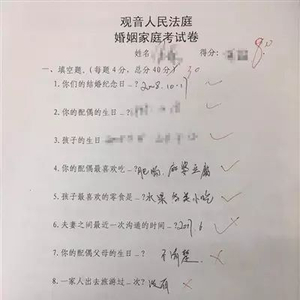 观音人民法庭
婚姻家庭考试卷
姓名: 得分: 80
一、填空题。(每题4分,总分40分) 30
1.你们的结婚纪念日..? 2008.10.1
2.你的配偶的生日..?
3.孩子的生日
4.你的配偶最喜欢吃..? 肥肠,麻婆豆腐
5.孩子最喜欢的零食是..? 水果 各类小吃
6.夫妻之间最近一次沟通的时间..?
7.你的配偶父母的生日..? 不清楚
8.一家人出去旅游过..次? 没有